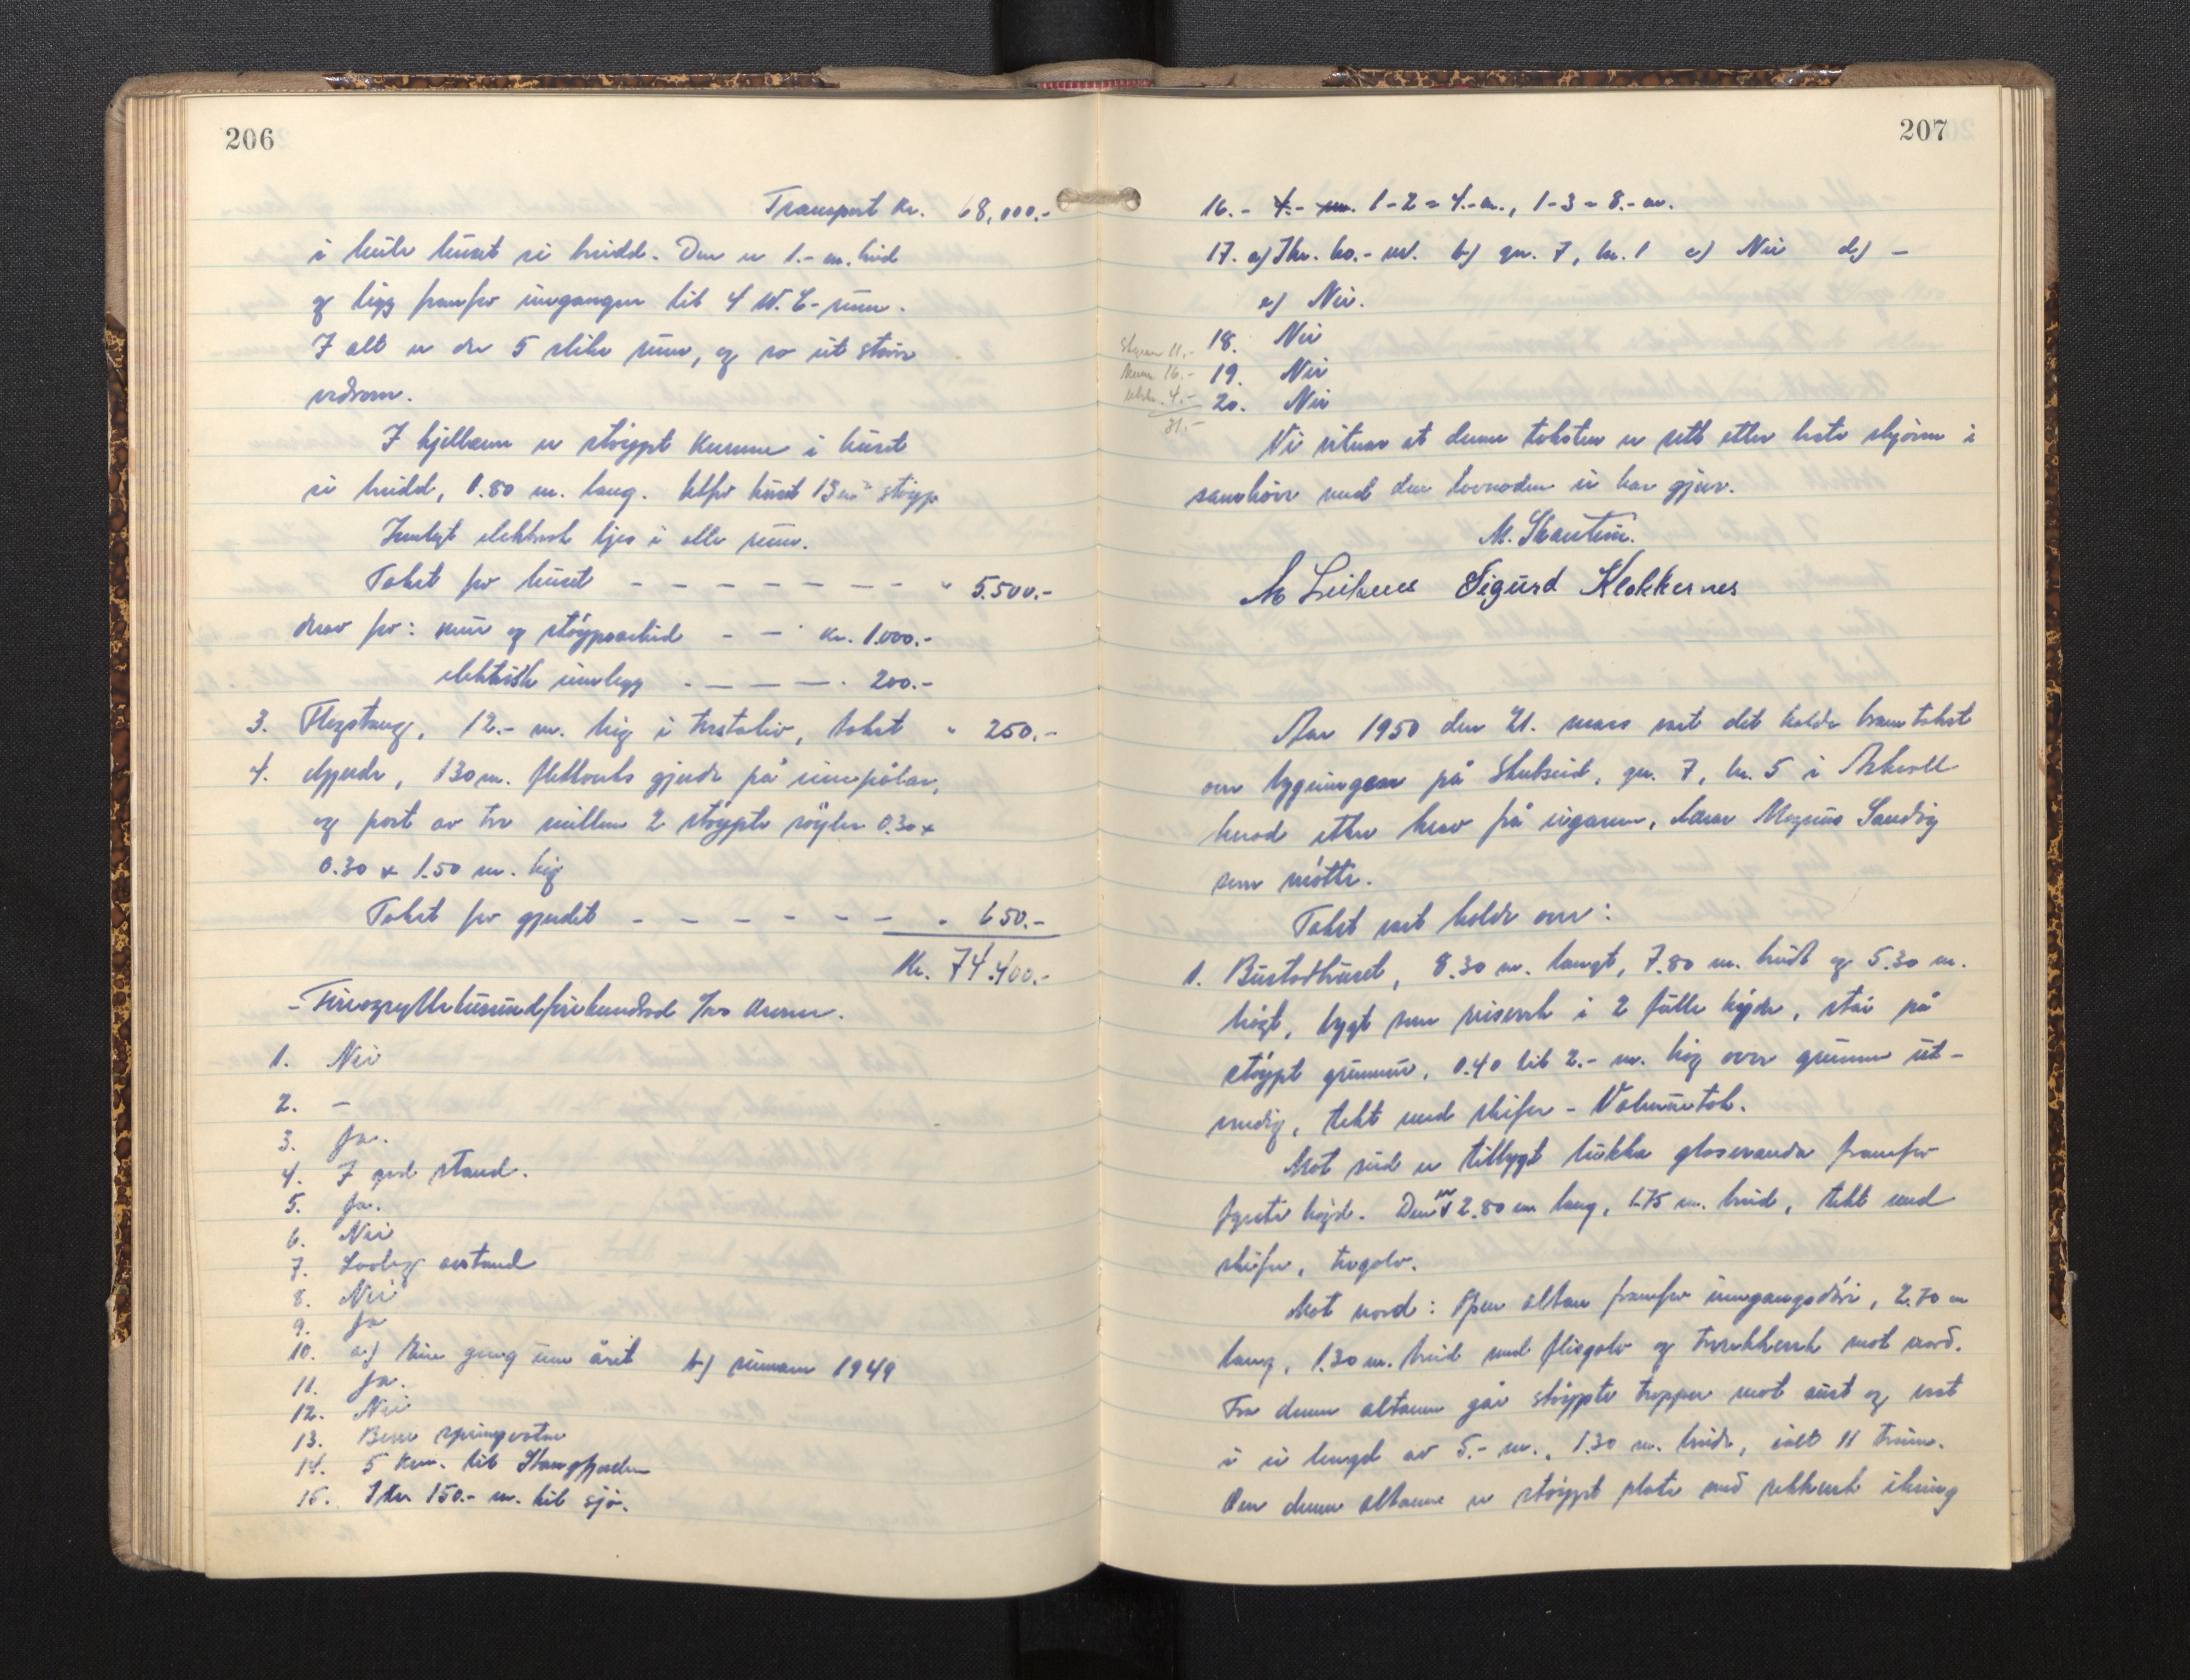 206
Transport kr. 68,000.-
i heile huset si breidd. Den er 1.- m. breid
og ligg framfor inngangen til 4 W.C-rum.
I alt er der 5 slike rum, og so eit større
vedrom.
I kjellaren er støypt kumme i huset
si breidd, 1.80 m. lang. Utfor huset 13 m² støyp
Innlagt elektrisk ljos i alle rum.
Takst for huset - - - - - - - - " 5.500.-
derav for: mur og støypearbeid - - kr. 1.000.-
elektrisk innlegg - - - - 200.-
3. Flagstang, 12.- m. høg i trestativ, takst " 250.-
4. Gjerde, 130 m. flettverks gjerde på jarnpålar,
og port av tre millom 2 støypte søyler 0.30 x
0.30 x 1.50 m. høg
Takst for gjerdet - - - - - - - " 650.-
Kr. 74.400.-
- Fireogsyttitusundfirehundrad 7/00 kroner.
1. Nei
2. -
3. Ja.
4. I god stand.
5. Ja.
6. Nei
7. Lovleg avstand
8. Nei
9. Ja
10. a) Ein gong um året b) sumaren 1949
11. Ja.
12. Nei
13. Berre springvatn
14. 5 km. til Stongfjorden
15. Ikr 150.- m. til sjø.
207
16. - 4.- m. 1-2 = 4.- m., 1-3 = 8.- m.
17. a) Ikr. 60.- m. b) gn. 7, bn. 1 c) Nei d) -
e) Nei.
18. Nei
19. Nei
20. Nei
11.-
16.-
4.-
31.-
Vi vitnar at denne taksten er sett etter beste skjønn i
samhøve med den lovnaden vi har gjeve.
M. Leiknes Sigurd Klokkernes
Aar 1950 den 21. mars vart det halde branntakst
over bygningar på Skulseid, gn. 7, bn. 5 i Askvoll
herad etter krav frå eigaren, lærar Magnus Sandvig
som møtte.
Takst vart halde over:
1. Bustadhuset, 8.30 m. langt, 7.80 m. breidt og 5.30 m.
høgt, bygt som reisverk i 2 fulle høgder, står på
støypt grunnmur, 0.40 til 2.- m. høg over grunnen ut-
vendig, tekt med skifer - Valmetak.
Mot sud er tilbygt lukka glasveranda framfor
fyrste høgd. Den er 2.80 m lang, 1.75 m. breid, tekt med
skifer, tregolv.
Mot nord: Open altan framfor inngangsdøri, 2.70 m
lang, 1.30 m. breid med flisgolv og trerekkverk mot nord.
Fra denne altanen går støypte trapper mot aust og vest
i ei lengd av 5.- m., 1.30 m. breide, ialt 11 trinn.
Over denne altanen er støypt plate med rekkverk ikring